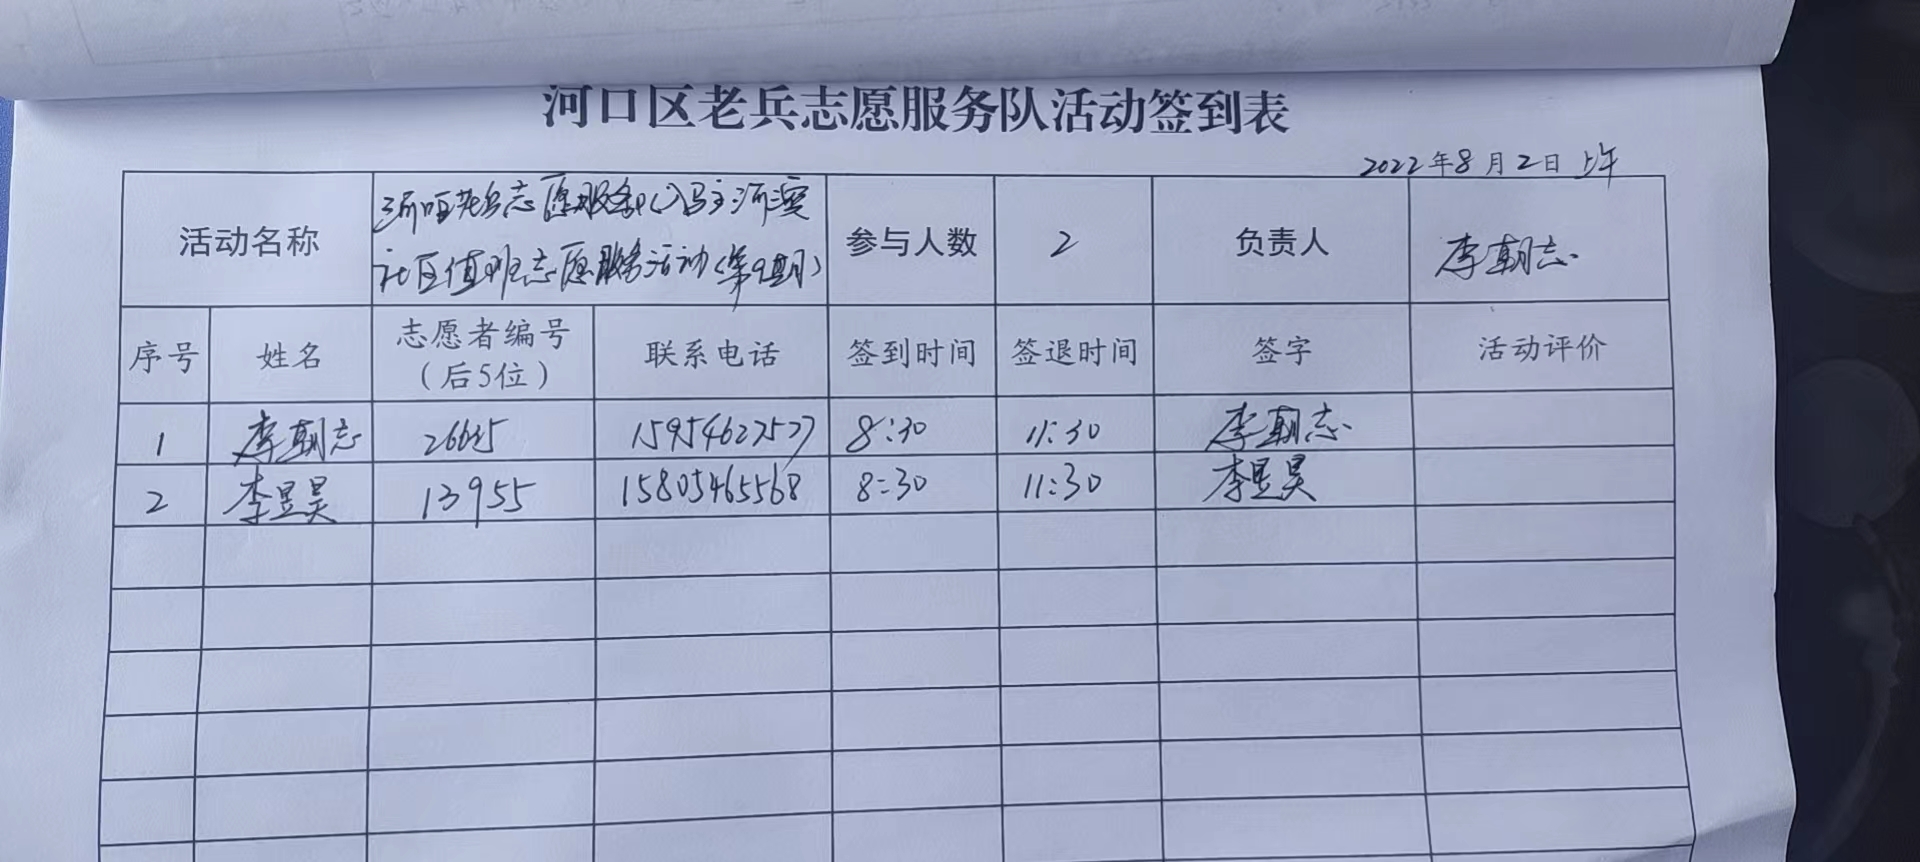 河口区老兵志愿服务队活动签到表
2022年8月2日 上午
活动名称 河口区老兵志愿服务队 河滨 参与人数 2 负责人 李朝志
社区值班志愿服务活动(第9期)
序号 姓名 志愿者编号 联系电话 签到时间 签退时间 签字 活动评价
(后5位)
1 李朝志 15954627577 8:30 11:30 李朝志
2 李昱昊 13955 15805465568 8:30 11:30 李昱昊